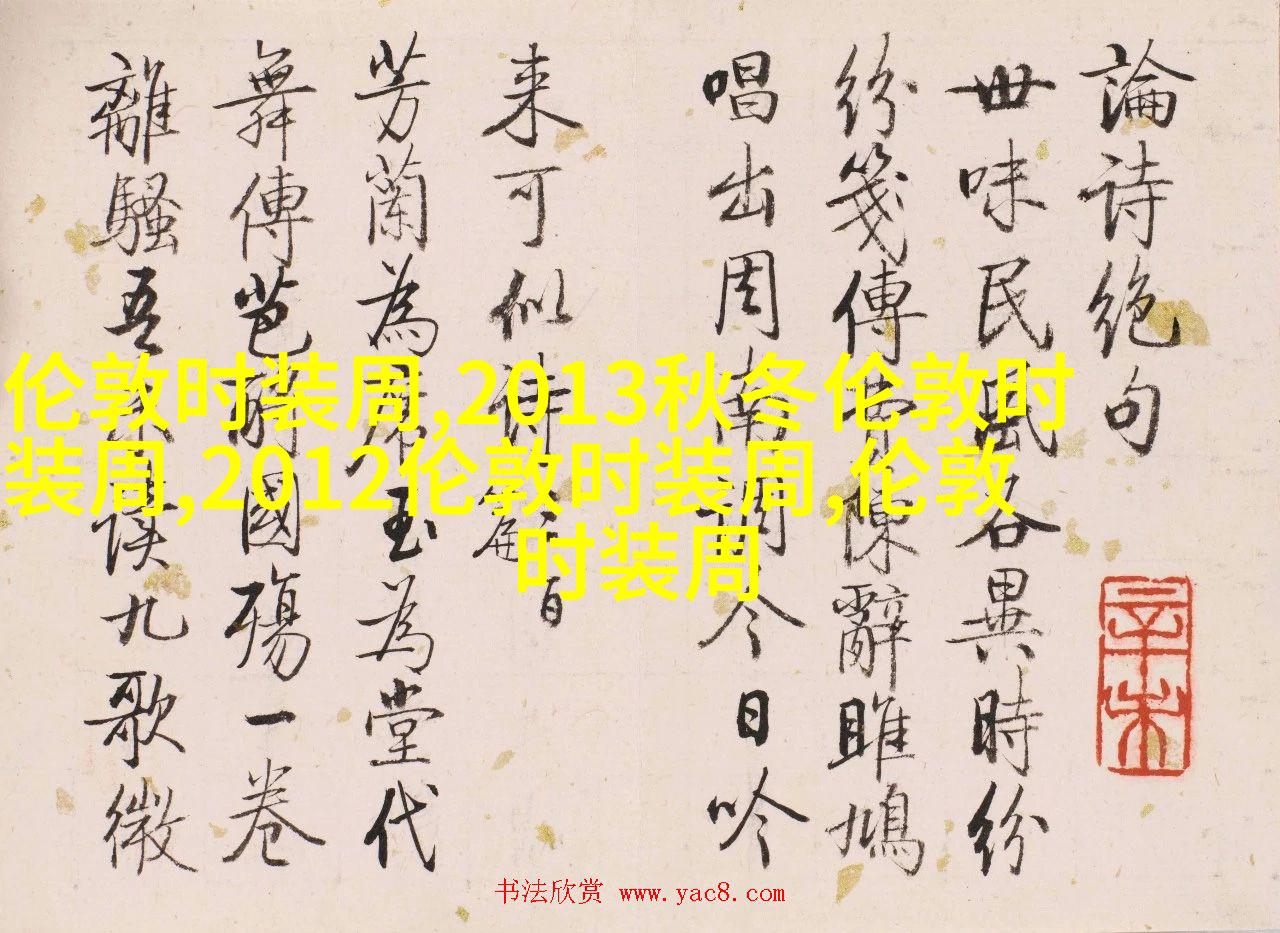 論诗絶句
世味民風各異時紛
紛箋傳陳辭雎鳩
唱出周南調今日吟
来可似诗篇百
芳蘭為席玉為堂代
舞傳芭酹國殤一卷
離騷吾讀九歌微
辛未
伦敦时装周,2013秋冬伦敦时
装周,2012伦敦时装周,伦敦
时装周
书法欣赏 www.yac8.com